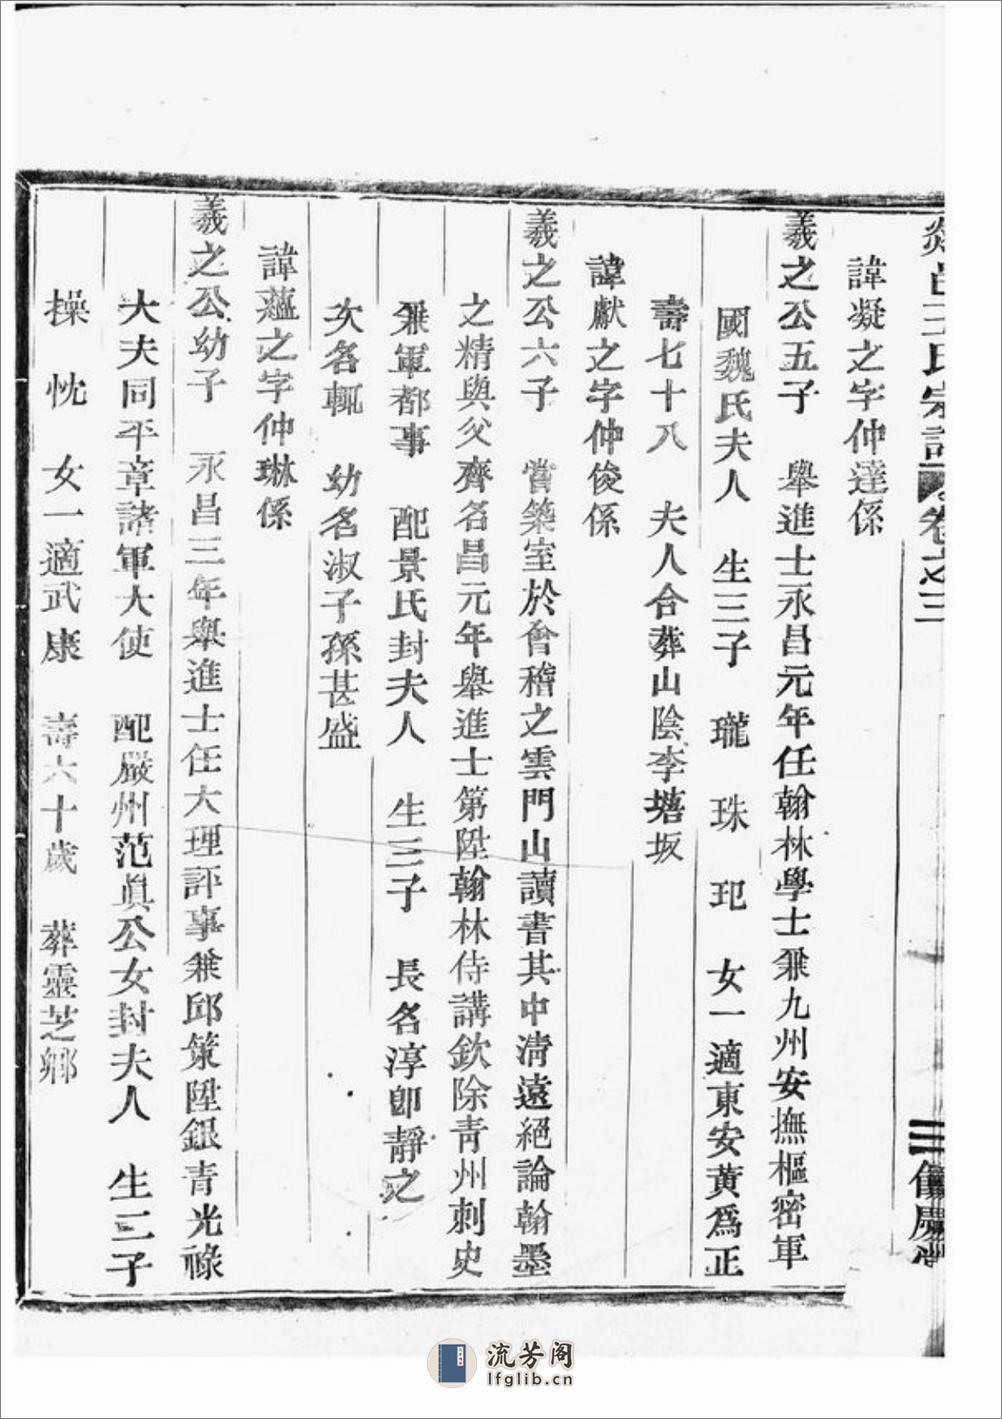 剡邑王氏宗譜 卷之三 三
諱凝之字仲達係
羲之公五子 舉進士永昌元年任翰林學士兼九州安撫樞密軍
國魏氏夫人 生三子 瓏 珠 玘 女一適東安黃為正
壽七十八 夫人合葬山陰李墖坂
諱獻之字仲俊係
羲之公六子 嘗築室於會稽之雲門山讀書其中清遠絕論翰墨
之精與父齊名昌元年舉進士第陞翰林侍講欽除青州刺史
兼軍都事 配景氏封夫人 生三子 長名淳卽靜之
次名輒 幼名淑子孫甚盛
諱蘊之字仲琳係
羲之公幼子 永昌三年舉進士任大理評事兼邱策陞銀青光祿
大夫同平章諸軍大使 配嚴州范眞公女封夫人 生二子
操 忱 女一適武康 壽六十歲 葬靈芝鄉
流芳阁
lfglib.cn